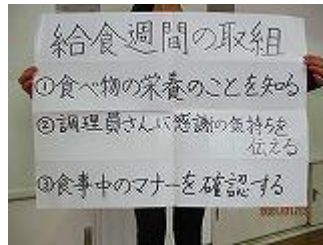 給食週間の取組
①食べ物の栄養のことを知る
②調理員さんに感謝の気持ちを
伝える
③食事中のマナーを確認する